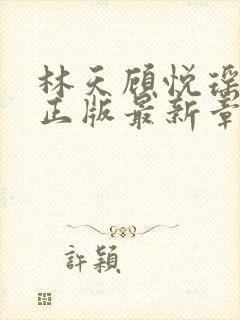 林天顾悦瑶
正版最新章
許穎